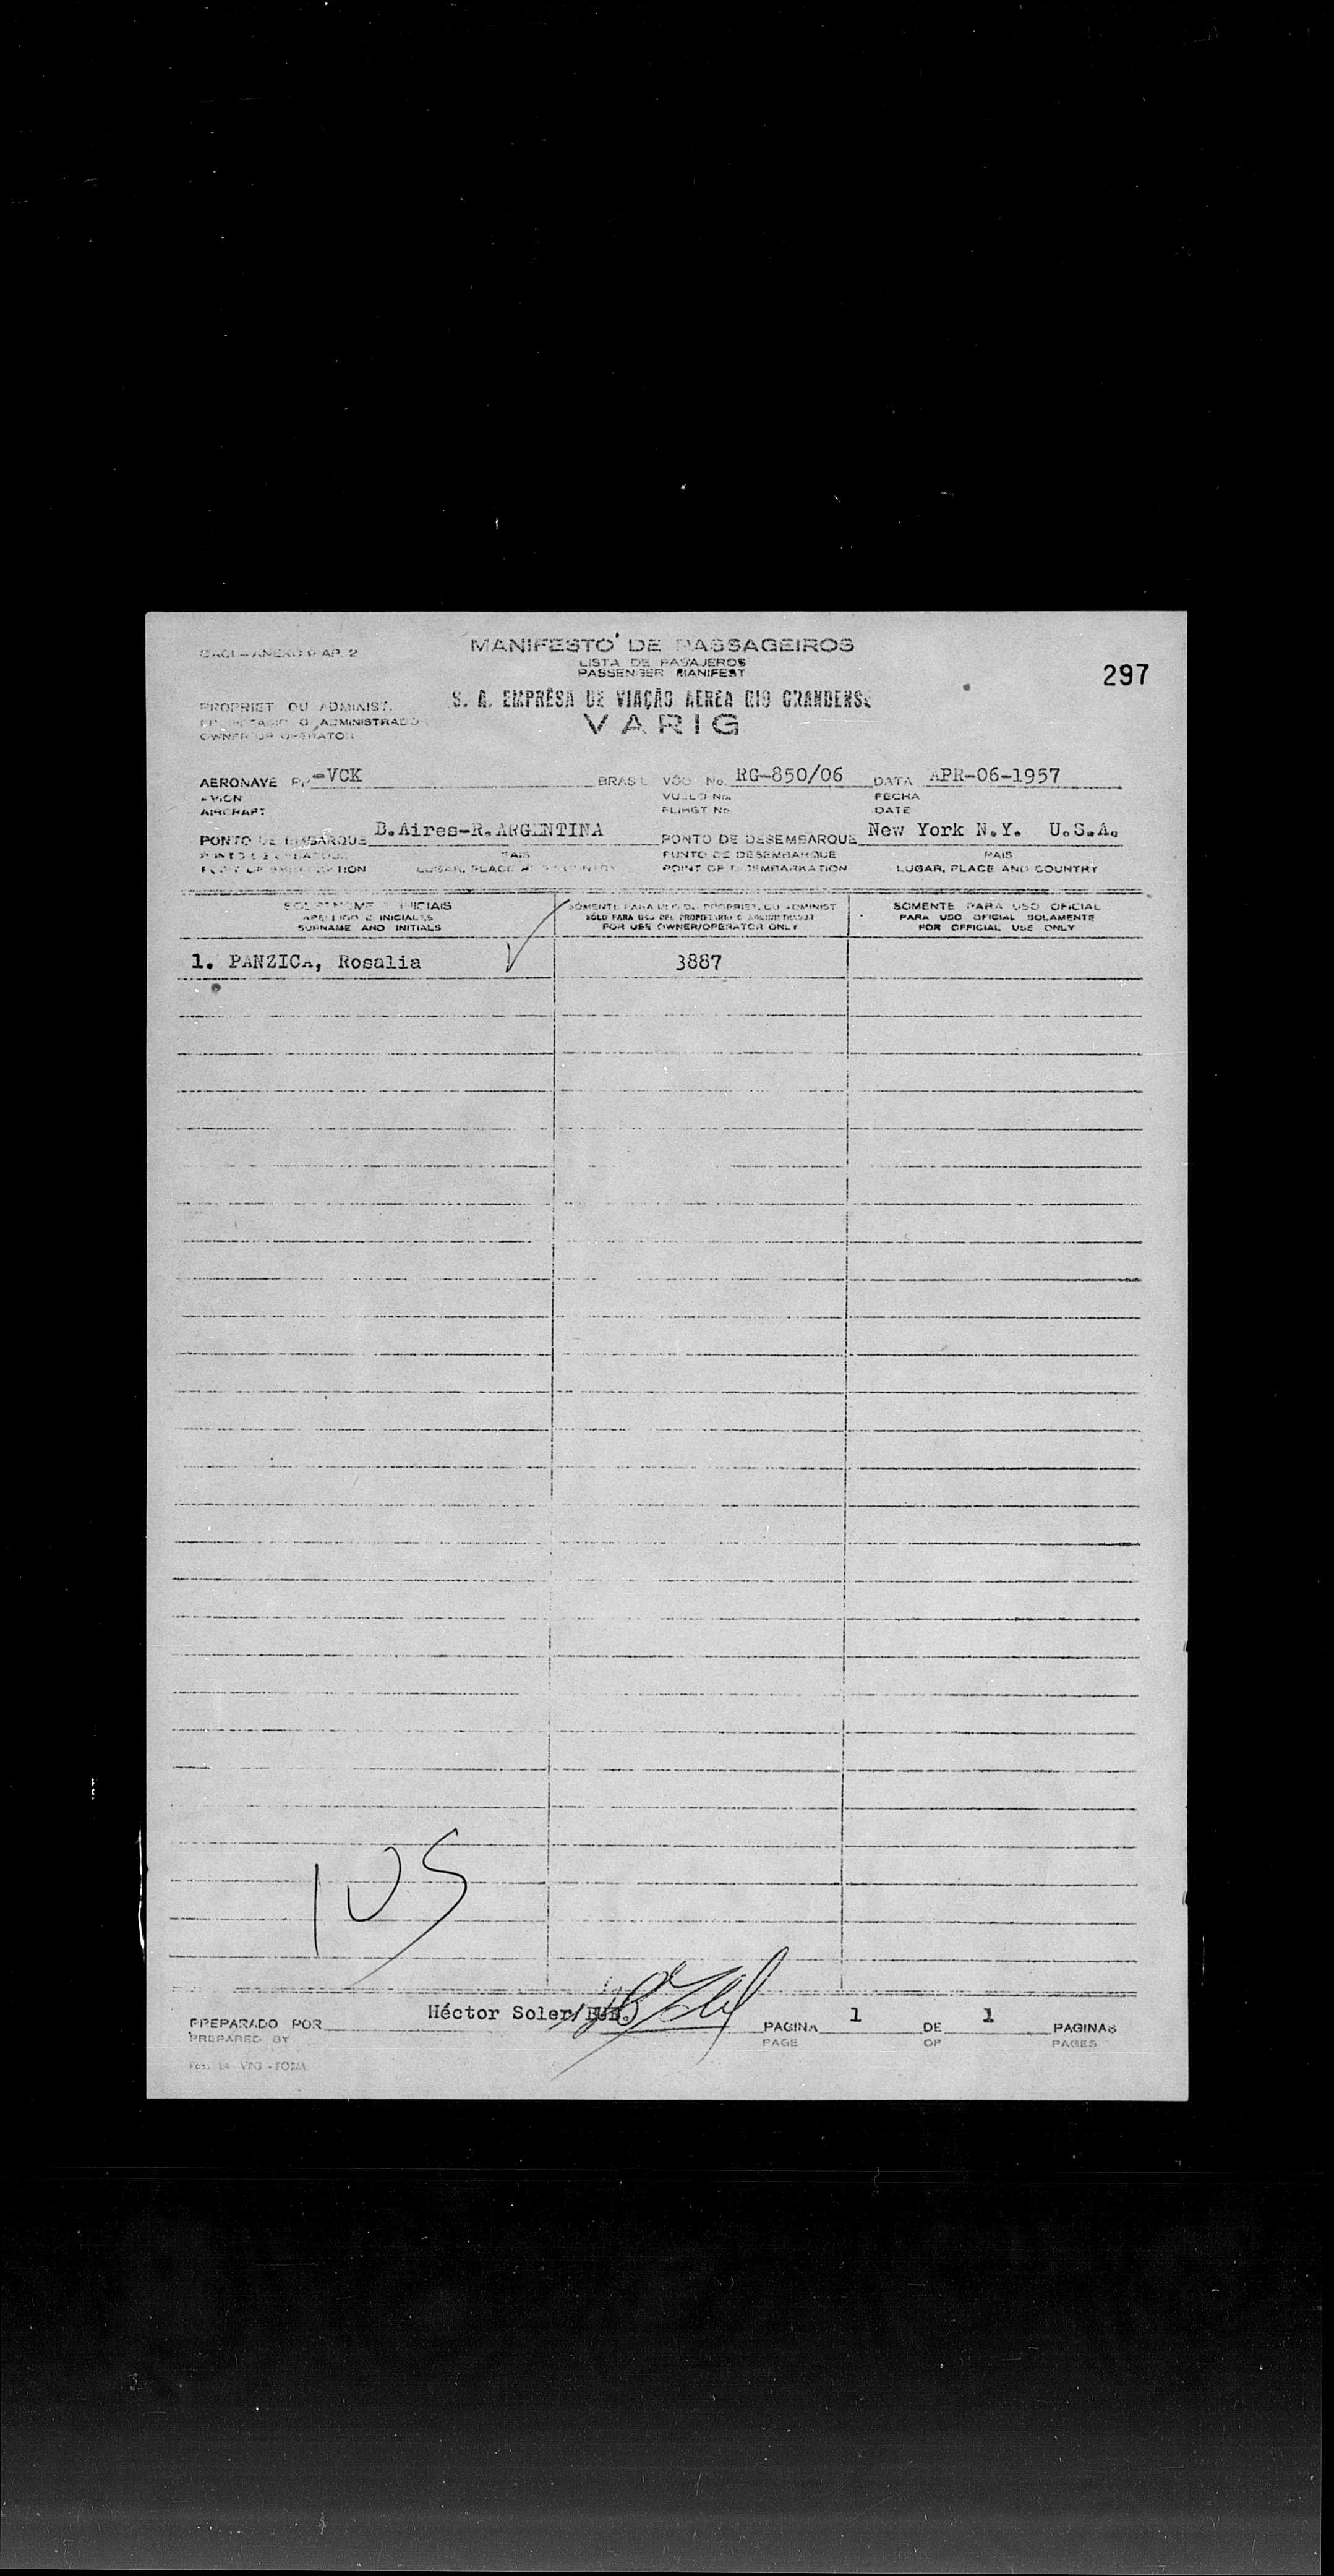 MANIFESTO DE PASSAGEIROS
LISTA DE PASAJEROS
PASSENGER MANIFEST
297
S. A. EMPRÊSA DE VIAÇÃO AEREA RIO GRANDENSE
VARIG
PROPRIET. OU ADMINIST.
PROPIETARIO O ADMINISTRADOR
OWNER OR OPERATOR
AERONAVE PP-VCK BRASIL VÔO No. RG-850/06 DATA APR-06-1957
AVION VUELO No. FECHA
AIRCRAFT FLIHGT No. DATE
PONTO DE EMBARQUE B.Aires-R.ARGENTINA PONTO DE DESEMBARQUE New York N.Y. U.S.A.
PAIS PUNTO DE DESEMBARQUE PAIS
LUGAR, PLACE AND COUNTRY POINT OF DISEMBARKATION LUGAR, PLACE AND COUNTRY
SOBRENOME E INICIAIS SÓMENTE PARA USO DO PROPRIET. OU ADMINIST SOMENTE PARA USO OFICIAL
APELLIDO E INICIALES SÓLO PARA USO DEL PROPIETARIO O ADMINISTRADOR PARA USO OFICIAL SOLAMENTE
SURNAME AND INITIALS FOR USE OWNER/OPERATOR ONLY FOR OFFICIAL USE ONLY
1. PANZICA, Rosalia 3887
105
PREPARADO POR Héctor Soler/ PAGINA 1 DE 1 PAGINAS
PREPARED BY PAGE OF PAGES